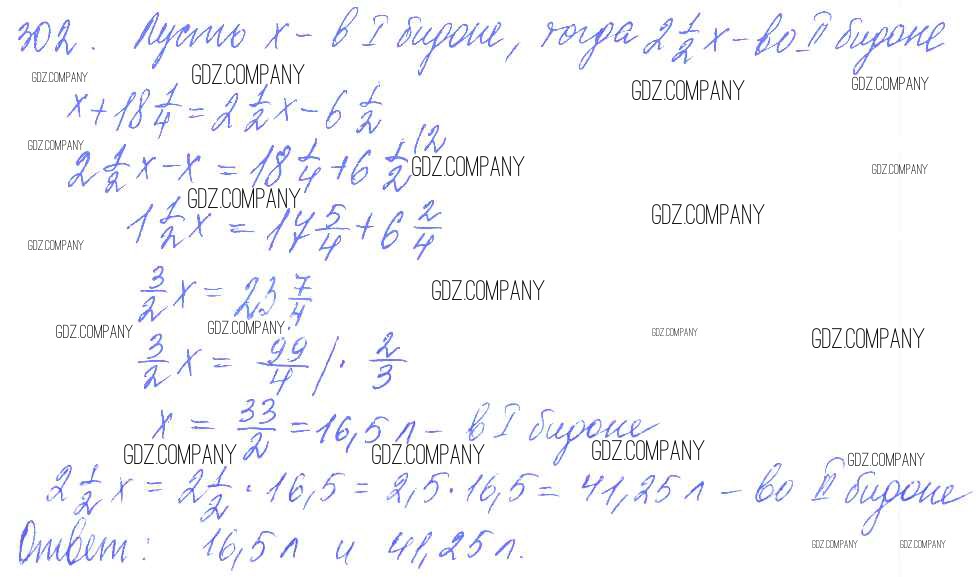 302. Пусть x - в I бидоне, тогда 2 1/2 x - во II бидоне
GDZ.COMPANY GDZ.COMPANY GDZ.COMPANY GDZ.COMPANY
x + 18 1/4 = 2 1/2 x - 6 1/2
GDZ.COMPANY
2 1/2 x - x = 18 1/4 + 6 1/2 /2
GDZ.COMPANY GDZ.COMPANY
GDZ.COMPANY GDZ.COMPANY
1 1/2 x = 17 5/4 + 6 2/4
GDZ.COMPANY
3/2 x = 23 7/4
GDZ.COMPANY
GDZ.COMPANY GDZ.COMPANY GDZ.COMPANY GDZ.COMPANY
3/2 x = 99/4 / · 2/3
x = 33/2 = 16,5 л - в I бидоне
GDZ.COMPANY GDZ.COMPANY GDZ.COMPANY GDZ.COMPANY
2 1/2 x = 2 1/2 · 16,5 = 2,5 · 16,5 = 41,25 л - во II бидоне
Ответ: 16,5 л и 41,25 л.
GDZ.COMPANY GDZ.COMPANY